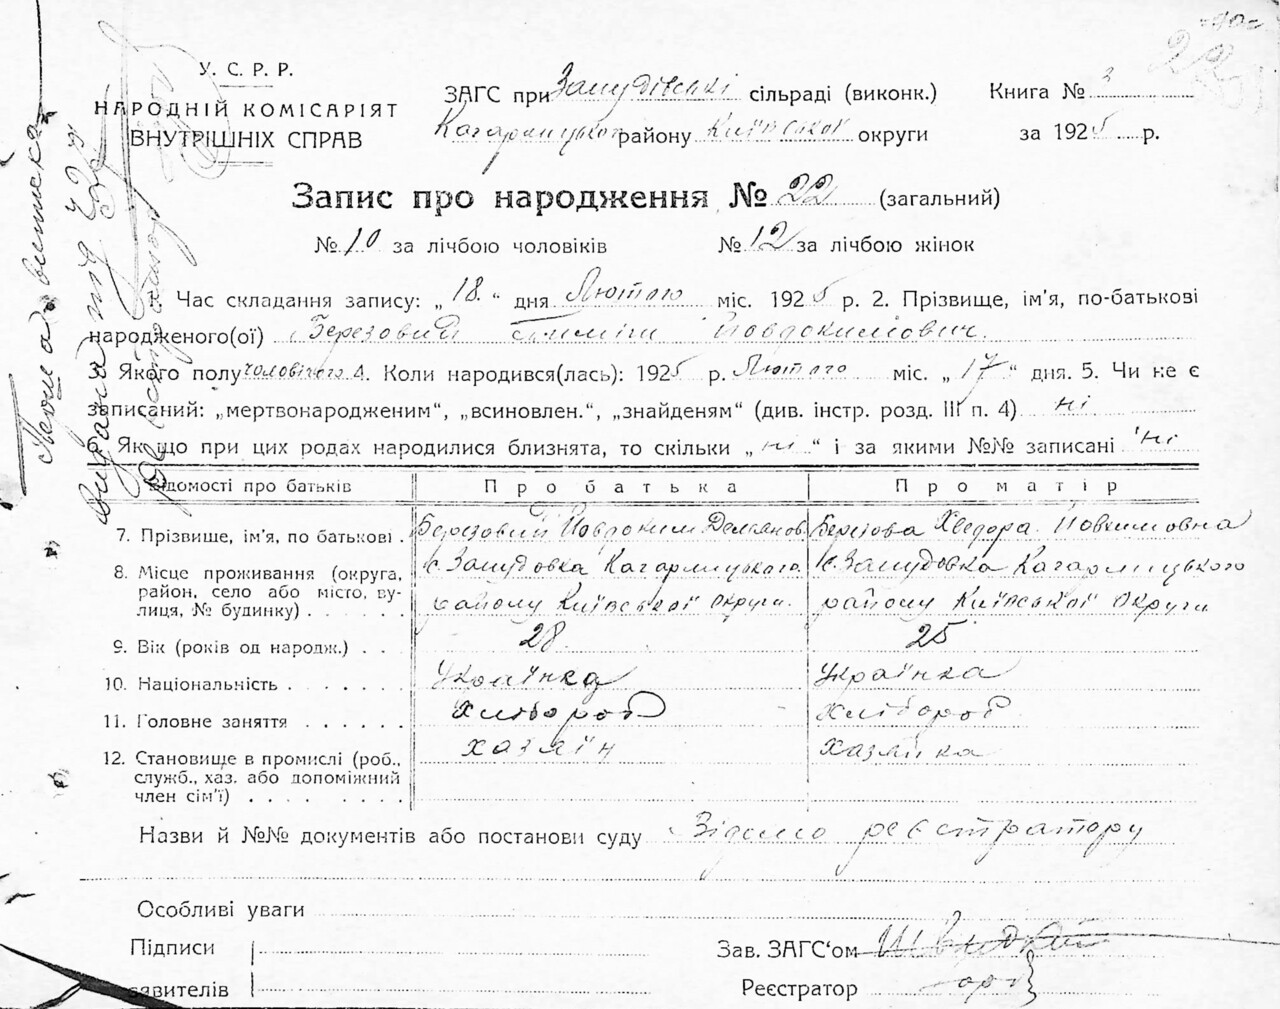 У. С. Р. Р.
НАРОДНІЙ КОМІСАРІЯТ
ВНУТРІШНІХ СПРАВ
ЗАГС при сільраді (виконк.)
Кагарлицького району Київської округи
Книга № 3
за 1925 р.
Запис про народження № 22 (загальний)
№ 10 за лічбою чоловіків № 12 за лічбою жінок
1. Час складання запису: „18“ дня Лютого міс. 1925 р. 2. Прізвище, ім'я, по-батькові
народженого(ої) Березовий Йовдокимович.
Якого полу чоловічого 4. Коли народився(лась): 1925 р. Лютого міс. „17“ дня. 5. Чи не є
записаний: „мертвонародженим“, „всиновлен.“, „знайденям“ (див. інстр. розд. III п. 4) ні
6. Якщо при цих родах народилися близнята, то скільки „ні“ і за якими №№ записані ні
Відомості про батьків Про батька Про матір
7. Прізвище, ім'я, по батькові . Березовий Йовдоким Березова Хведора
8. Місце проживання (округа, район, село або місто, вулиця, № будинку) . . . .
с. Кагарлицького
району Київської Округи.
с. Кагарлицького
району Київської Округи
9. Вік (років од народж.) . . 28 25
10. Національність . . . . . . Українка Українка
11. Головне заняття . . . . . . Хлібороб Хлібороб
12. Становище в промислі (роб., служб., хаз. або допоміжний член сім'ї) . . . . . . . . хазяїн хазяйка
Назви й №№ документів або постанови суду Відомо реєстратору
Особливі уваги
Підписи
заявителів
Зав. ЗАГС'ом
Реєстратор